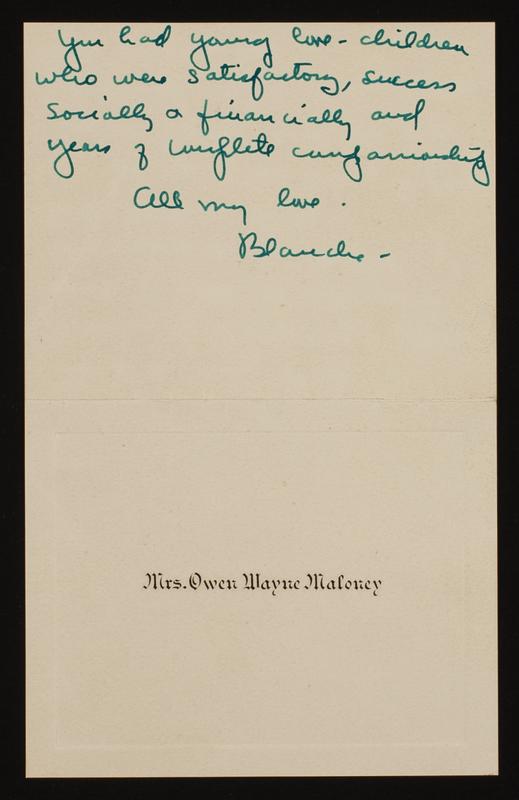 You had young love - children
who were satisfactory, success
socially & financially and
years of complete companionship
All my love.
Blanche -
Mrs. Owen Wayne Maloney